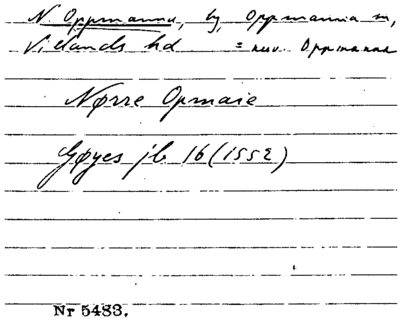 N. Oppmanna, by, Oppmanna sn,
Villands hd = nuv. Oppmanna
Nørre Opmaie
Gøyes jb 16 (1552)
Nr 5483.